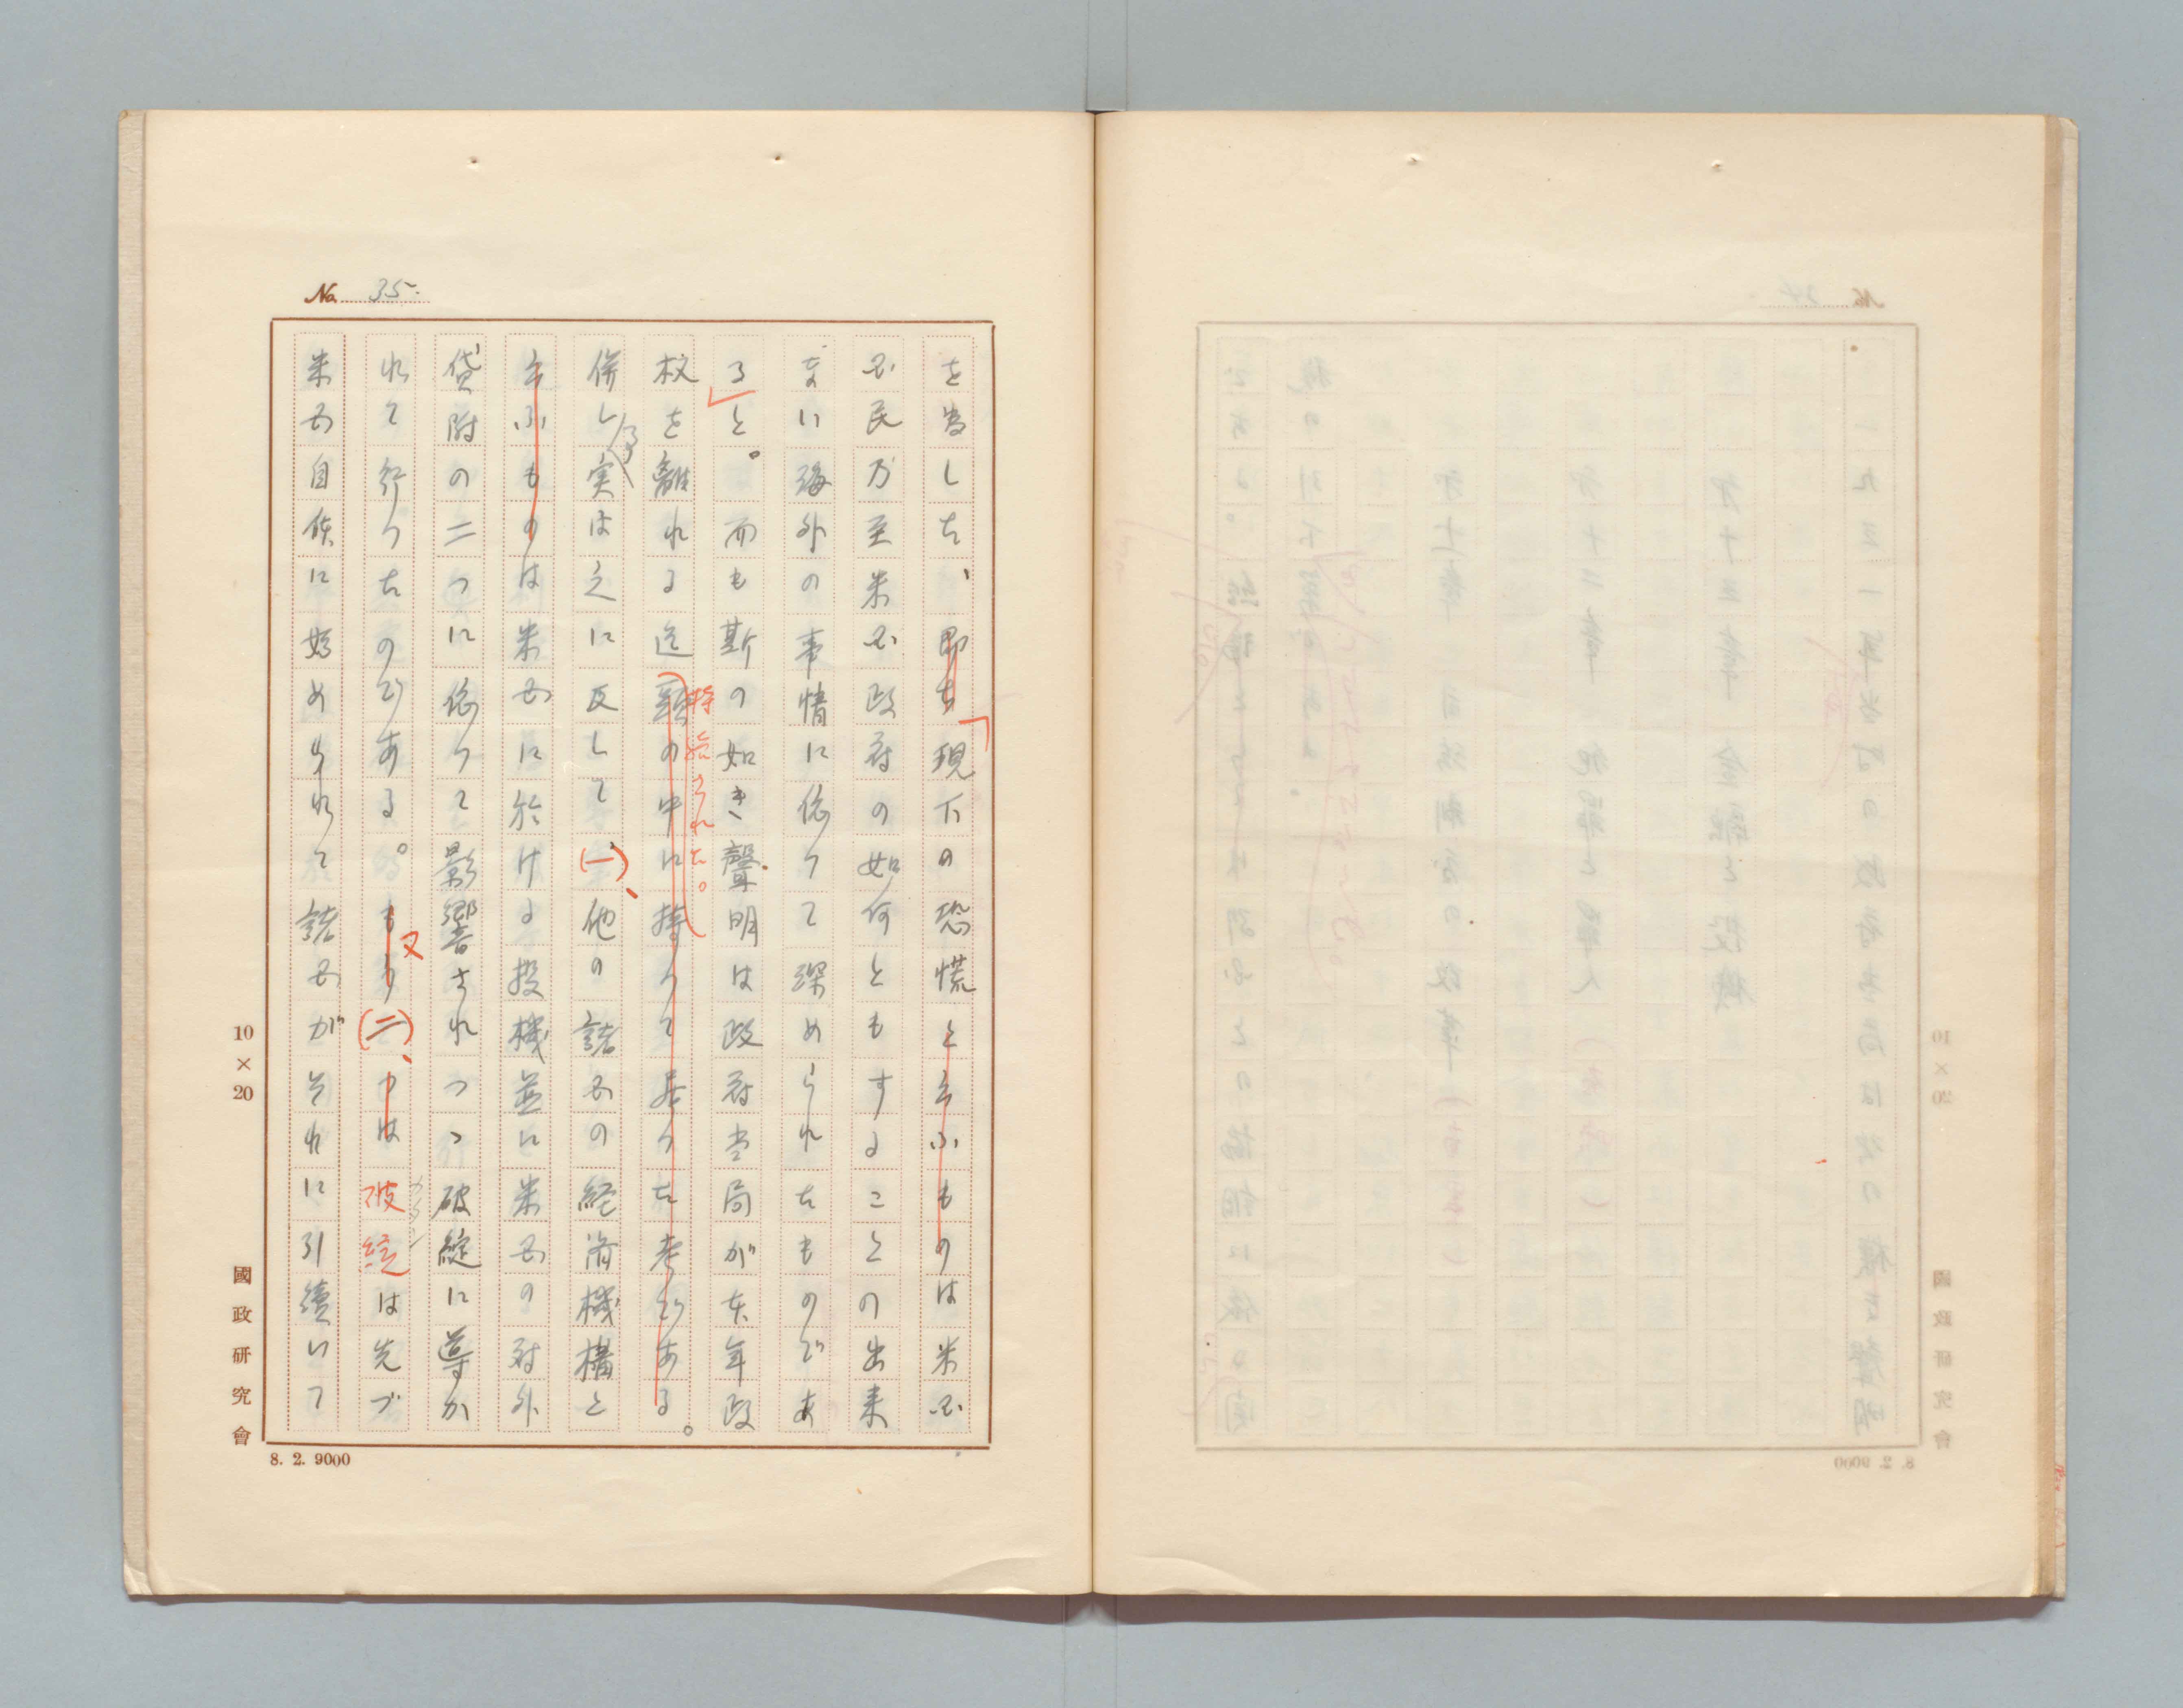 No. 35.
を為した、即ち「現下の恐慌と云ふものは米国
国民乃至米国政府の如何ともすることの出来
ない海外の事情に依つて深められたものであ
る」と。而も斯の如き聲明は政府当局が本年政
持続られた。
权を離れる迄頭の中に持つて居つた考である。
併し実は之に反して(一)、他の諸国の経済機構と
云ふものは米国に於ける投機並に米国の対外
貸附の二つに依つて影響されつつ破綻に導か
れて行つたのである。もう又(二)、つは破綻は先づ
米国自体に始められて諸国がそれに引續いて
10×20
國政研究會
8. 2. 9000